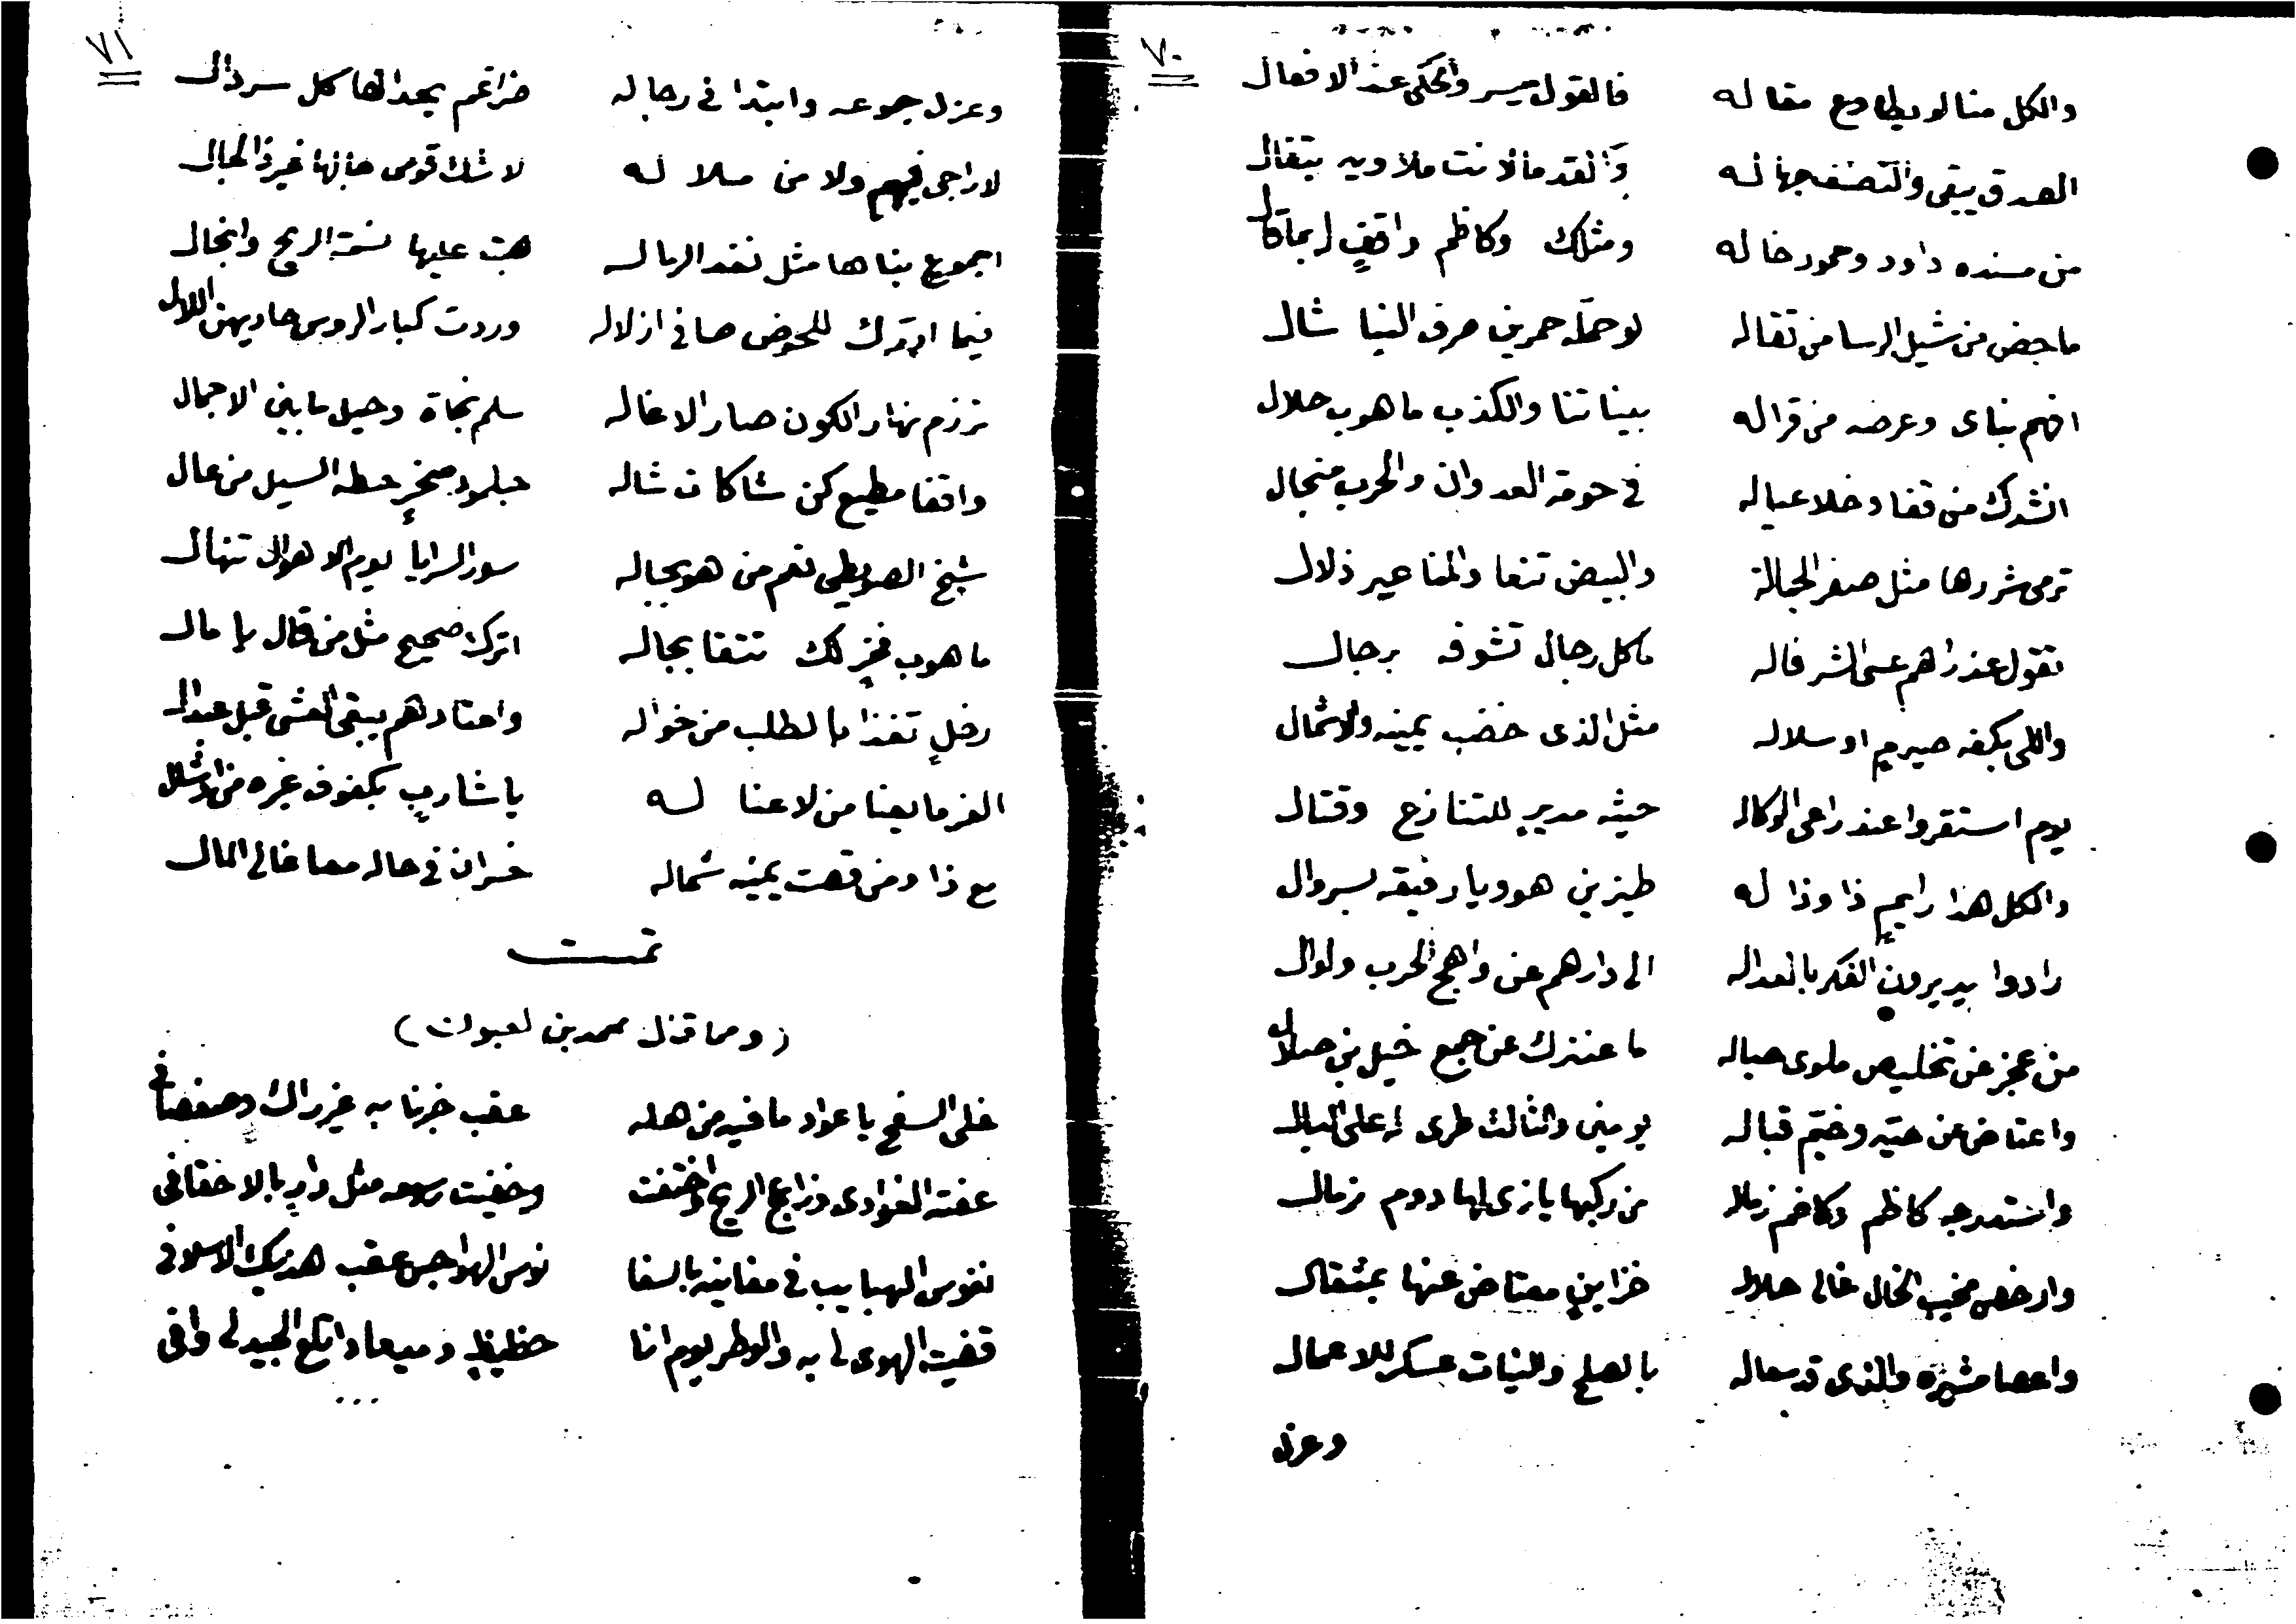 ٧٠
والكل منا لو يطاوع مقاله فالقول ميسر والحكي عند الافعال
الصدق يبقى والتصنف جهاله والقد مالانت ملاويه بتفال
من مسنده داود وحمود خاله ومثلك وكاظم واقفٍ
ما جض من شيل الرسا من ثقاله لو حمله حمرين صرف النيا شال
افهم بناى وعرضه من قراله بيناتنا والكذب ما هوب حلال
انشدك من قفا وخلا عياله في حومة العدوان والحرب منجال
ترمي شررها مثل صفر الجمالة والبيض تنعا والمناعير ذلال
تقول عذراهم عسى الشر فاله ما كل رجال تشوفه برجال
واللي بكفه صيرمٍ او سلاله مثل الذى خضب يمينه والاشمال
يوم استقروا عند راعي الوكاله حيثه مديرٍ للتنازع وقتال
والكل هذا رايمٍ ذا وذا له طيزين هوويا رفيقه بسروال
رادوا يديرون الفكر بالعداله الى دارهم عن واهج الحرب ولوال
من عجز عن تخليص ملوى حباله ما عنزك عن جمع خيل بن هلال
واعتاض عن حتيه وختم قباله يومين والثالث طرى له على البال
واستمدجه كاظم وكاضم زماله من ركبها يازى لها دوم زمال
وارخص مخيب الخال غالى حلاله خزاينٍ معتاض عنها بمثقال
واعصا مشيره والذى قد سعاله بالصلح والنيات عسكر للاعمال
وعزل
٧١
وعزل جموعه وابتدا في رجاله ضراغم يحدا لها كل سردال
لا راجي فيهم ولا من مسلا له لا شك قومى ها بها غير ذا الحال
اجموع بناها مثل نقد الرماله هبت عليها نسمة الريح وانجال
فيما اورك للحوض صافي ازلاله وردت كبار الروس حاديهن اللال
ترزم نهار الكون صار الاغاله سلم نجاة وحيل ما بين الاجمال
واقفا مطيع كن شاكات شاله جلمود صخرٍ حطه السيل من عال
شيخ الصويطي نعم من هو بجاله سور السرايا يوم الاهوال تنهال
ما هوب فخرٍ لك تنتقا بجاله اترك صحيح مثل من قال يا مال
رخلٍ تغذا بالطلب من خواله واعتادهم يبقي العشى قبل عبدال
الغر ما يعنا من لا عنا له يا شاربٍ بكفوف غيره من اوشال
مع ذا ومن قصت يمينه شماله خسران في حاله معا غالي المال
تمت
(ومما قال محمد بن لعبون)
خلي السفح يا عواد ما فيه من هله عقب خبرنا به غير راك وصفصافي
عفته الغوادى وزايع الريح واختفت وخفيت رسومه مثل وادٍ بالاحقافى
نفوس الهبايب في مغانيه بالسفا نوس الهواجس عقب هذيك الاسلافي
قضيت الهوى لى به والوطر يوم انا حظيظٍ وميعاد اتلع الجيد لى وافى
...